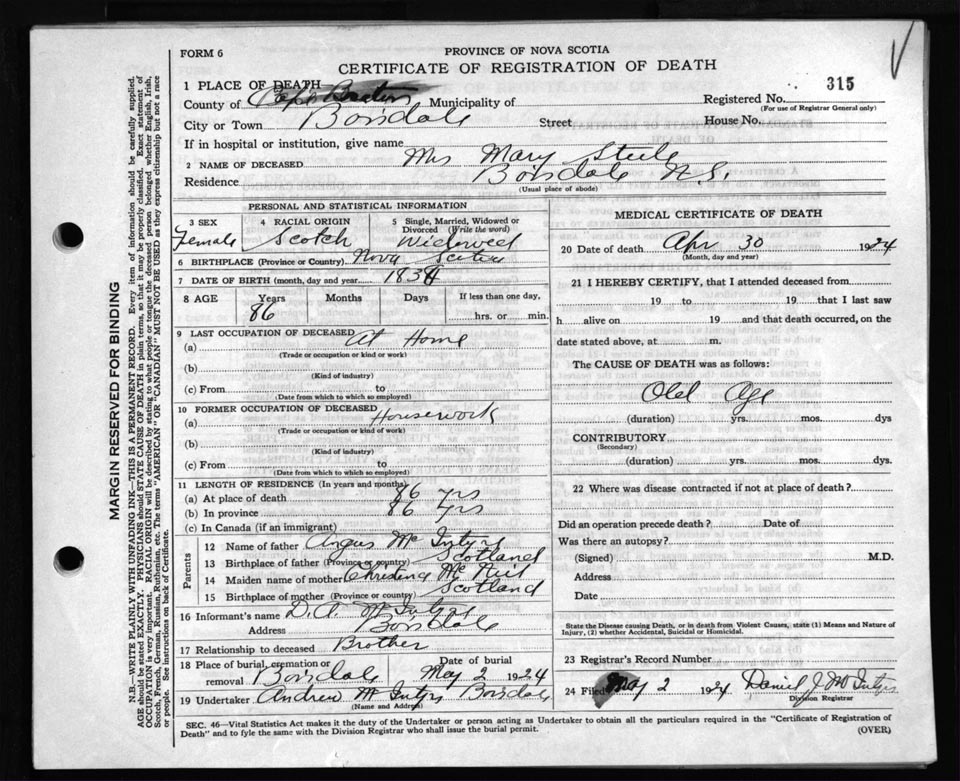 FORM 6
PROVINCE OF NOVA SCOTIA
CERTIFICATE OF REGISTRATION OF DEATH
315
1 PLACE OF DEATH
County of Cape Breton Municipality of
Registered No.
(For use of Registrar General only)
City or Town Boisdale Street House No.
If in hospital or institution, give name
2 NAME OF DECEASED Mrs Mary Steele
Residence Boisdale N.S.
(Usual place of abode)
PERSONAL AND STATISTICAL INFORMATION
3 SEX Female
4 RACIAL ORIGIN Scotch
5 Single, Married, Widowed or Divorced (Write the word) Widowed
6 BIRTHPLACE (Province or Country) Nova Scotia
7 DATE OF BIRTH (month, day and year) 1838
8 AGE Years 86 Months Days If less than one day, hrs. or min.
9 LAST OCCUPATION OF DECEASED
(a) At Home
(Trade or occupation or kind of work)
(b)
(Kind of industry)
(c) From to
(Date from which to which so employed)
10 FORMER OCCUPATION OF DECEASED
(a) Housework
(Trade or occupation or kind of work)
(b)
(Kind of industry)
(c) From to
(Date from which to which so employed)
11 LENGTH OF RESIDENCE (In years and months)
(a) At place of death 86 yrs
(b) In province 86 yrs
(c) In Canada (if an immigrant)
Parents
12 Name of father Angus McIntyre
13 Birthplace of father (Province or country) Scotland
14 Maiden name of mother Christina McNeil
15 Birthplace of mother (Province or country) Scotland
16 Informant's name D.A. McIntyre
Address Boisdale
17 Relationship to deceased Brother
18 Place of burial, cremation or removal Boisdale Date of burial May 2 1924
19 Undertaker Andrew McIntyre Boisdale
(Name and Address)
MEDICAL CERTIFICATE OF DEATH
20 Date of death Apr 30 1924
(Month, day and year)
21 I HEREBY CERTIFY, that I attended deceased from
19 to 19 that I last saw
h alive on 19 and that death occurred, on the
date stated above, at m.
The CAUSE OF DEATH was as follows:
Old Age
(duration) yrs. mos. dys
CONTRIBUTORY
(Secondary)
(duration) yrs. mos. dys.
22 Where was disease contracted if not at place of death?
Did an operation precede death? Date of
Was there an autopsy?
(Signed) M.D.
Address
Date
State the Disease causing Death, or in death from Violent Causes, state (1) Means and Nature of
Injury, (2) whether Accidental, Suicidal or Homicidal.
23 Registrar's Record Number
24 Filed May 2 1924 Daniel J McIntyre
Division Registrar
SEC. 46—Vital Statistics Act makes it the duty of the Undertaker or person acting as Undertaker to obtain all the particulars required in the "Certificate of Registration of
Death" and to fyle the same with the Division Registrar who shall issue the burial permit.
(OVER)
MARGIN RESERVED FOR BINDING
N.B.—WRITE PLAINLY WITH UNFADING INK—THIS IS A PERMANENT RECORD. Every item of information should be carefully supplied.
AGE should be stated EXACTLY. PHYSICIANS should STATE CAUSE OF DEATH in plain terms, so that it may be properly classified. Exact statement of
OCCUPATION is very important. RACIAL ORIGIN will be described by stating to what people or tongue the deceased person belonged whether English, Irish,
Scotch, French, German, Russian, Ruthenian, etc. The terms "AMERICAN" OR "CANADIAN" MUST NOT BE USED as they express citizenship but not a race
or people. See instructions on back of Certificate.